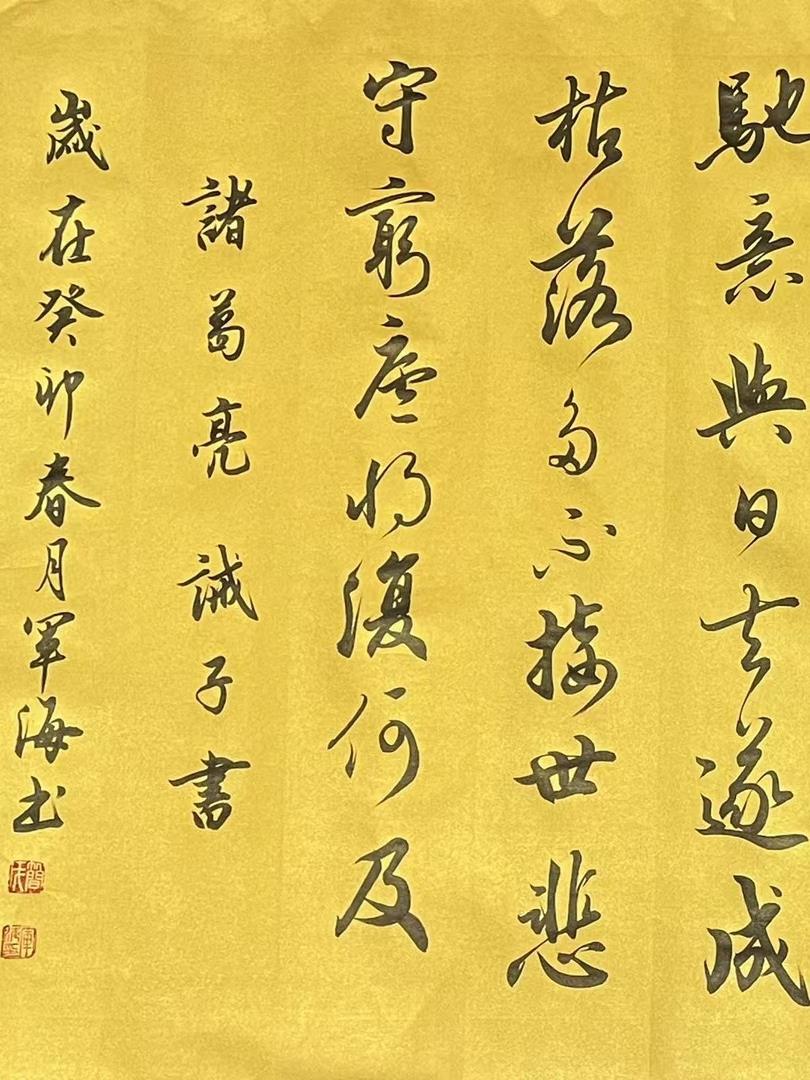 馳意與日去遂成
枯落多不接世悲
守窮廬將復何及
諸葛亮 誡子書
歲在癸卯春月軍海书